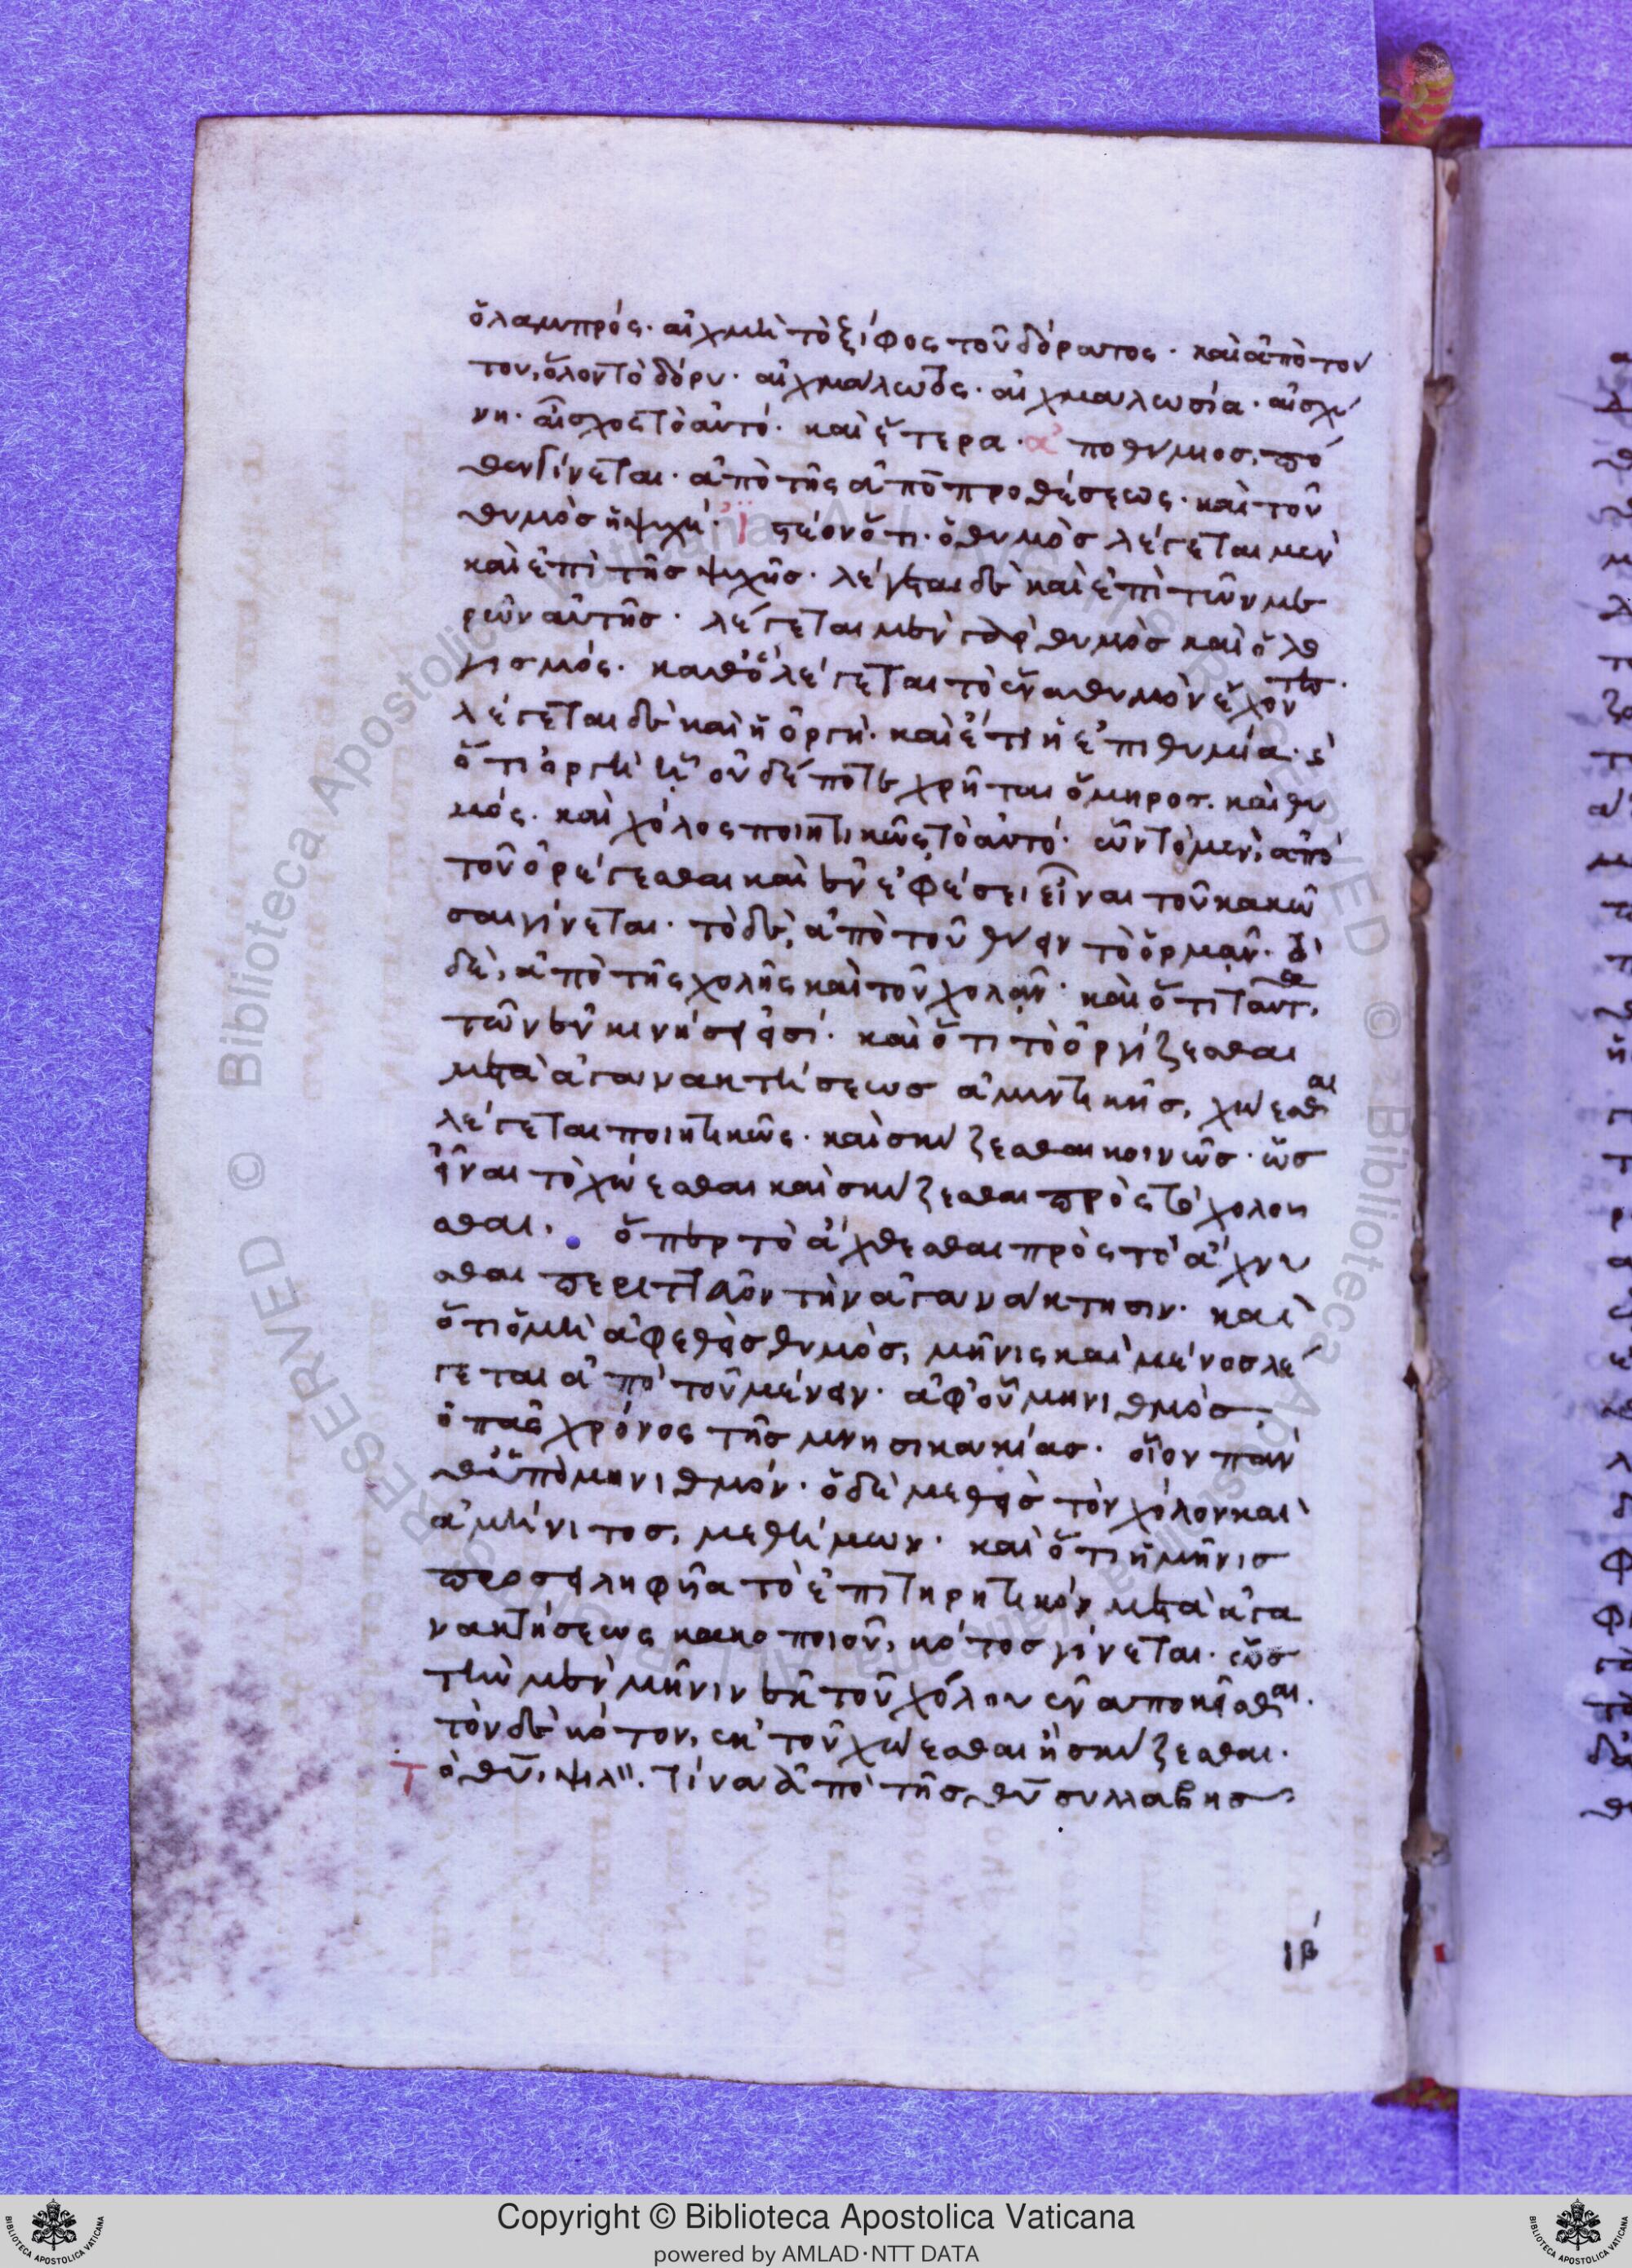 ὁ λαμπρός. αἰχμὴ τὸ ξίφος τοῦ δόρατος. καὶ ἀπὸ τού
του, ὅλον τὸ δόρυ. αἰχμάλωτος. αἰχμαλωσία. αἰσχύ
νη. αἶσχος τὸ αὐτό. καὶ ἕτερα. ἀποθύμιος, πό
θεν γίνεται. ἀπὸ τῆς ἀπὸ προθέσεως. καὶ τοῦ
θυμὸς ἡ ψυχή. ἰστέον ὅτι ὁ θυμὸς λέγεται μὲν
καὶ ἐπὶ τῆς ψυχῆς. λέγεται δὲ καὶ ἐπὶ τῶν με
ρῶν αὐτῆς. λέγεται μὲν γὰρ θυμὸς καὶ ὁ λο
γισμός. καθὸ λέγεται τὸ ἕνα θυμὸν ἔχοντες.
λέγεται δὲ καὶ ἡ ὀργή. καὶ ἔτι ἡ ἐπιθυμία.
ὅτι ὀργὴ οὐδέποτε χρῆται ὅμηρος. καὶ θυ
μός. καὶ χόλος ποιητικῶς τὸ αὐτό. ὧν τὸ μὲν, ἀπὸ
τοῦ ὀρέγεσθαι καὶ ἐν ἐφέσει εἶναι τοῦ κακῶ
σαι γίνεται. τὸ δὲ, ἀπὸ τοῦ θύειν τὸ ὁρμᾶν.
δὲ, ἀπὸ τῆς χολῆς καὶ τοῦ χολᾶν. καὶ ὅτι ταῦτα
τῶν ἐν κινήσει εἰσί. καὶ ὅτι τὸ ὀργίζεσθαι
μετὰ ἀγανακτήσεως ἀμυντικῆς, χώεσθαι
λέγεται ποιητικῶς. καὶ σκύζεσθαι κοινῶς. ὡς
εἶναι τὸ χώεσθαι καὶ σκύζεσθαι πρὸς τὸ χολοῦ
σθαι. ὅπερ τὸ ἄχθεσθαι πρὸς τὸ ἄχνυ
σθαι περιττὸν τὴν ἀγανάκτησιν. καὶ
ὅτι ὁ μὴ ἀφεθεὶς θυμὸς, μῆνις καὶ μένος λέ
γεται ἀπὸ τοῦ μένειν. ἀφ' οὗ μηνιθμὸς,
ὁ πᾶς χρόνος τῆς μνησικακίας. οἷον παύ
θ' ὑπὸ μηνιθμόν. ὁ δὲ μεθεὶς τὸν χόλον καὶ
ἀμήνιτος, μεθήμων. καὶ ὅτι ἡ μῆνις
προσειληφῆα τὸ ἐπιτηρητικὸν μετὰ ἀγα
νακτήσεως κακοποιοῦ, κότος γίνεται. ὡς
τὴν μὲν μῆνιν ἐκ τοῦ χόλου ἐναποκεῖσθαι.
τὸν δὲ κότον, ἐκ τοῦ χώεσθαι ἢ σκύζεσθαι.
Τὸ θῦ, ψιλ". τίνα ἀπὸ τῆς θῦ συλλαβῆς
ιβ´
Copyright © Biblioteca Apostolica Vaticana
powered by AMLAD·NTT DATA